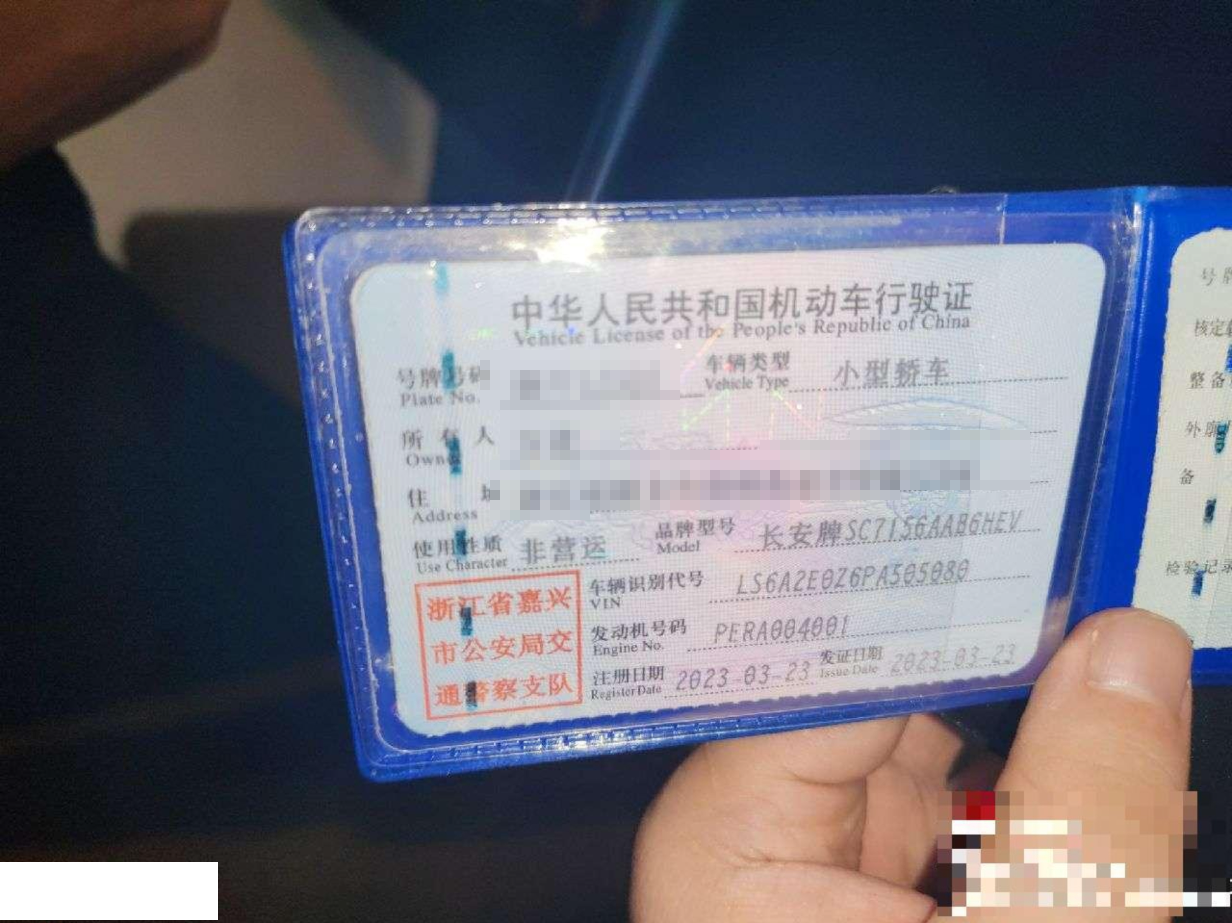 中华人民共和国机动车行驶证
Vehicle License of the People's Republic of China
号牌号码
Plate No.
车辆类型 小型轿车
Vehicle Type
所有人
Owner
住 址
Address
使用性质 非营运
Use Character
品牌型号 长安牌SC7156AAB6HEV
Model
车辆识别代号 LS6A2E0Z6PA505080
VIN
发动机号码 PERA004001
Engine No.
注册日期 2023-03-23
Register Date
发证日期 2023-03-23
Issue Date
浙江省嘉兴
市公安局交
通警察支队
号牌
核定
整备
外廓
备
检验记录